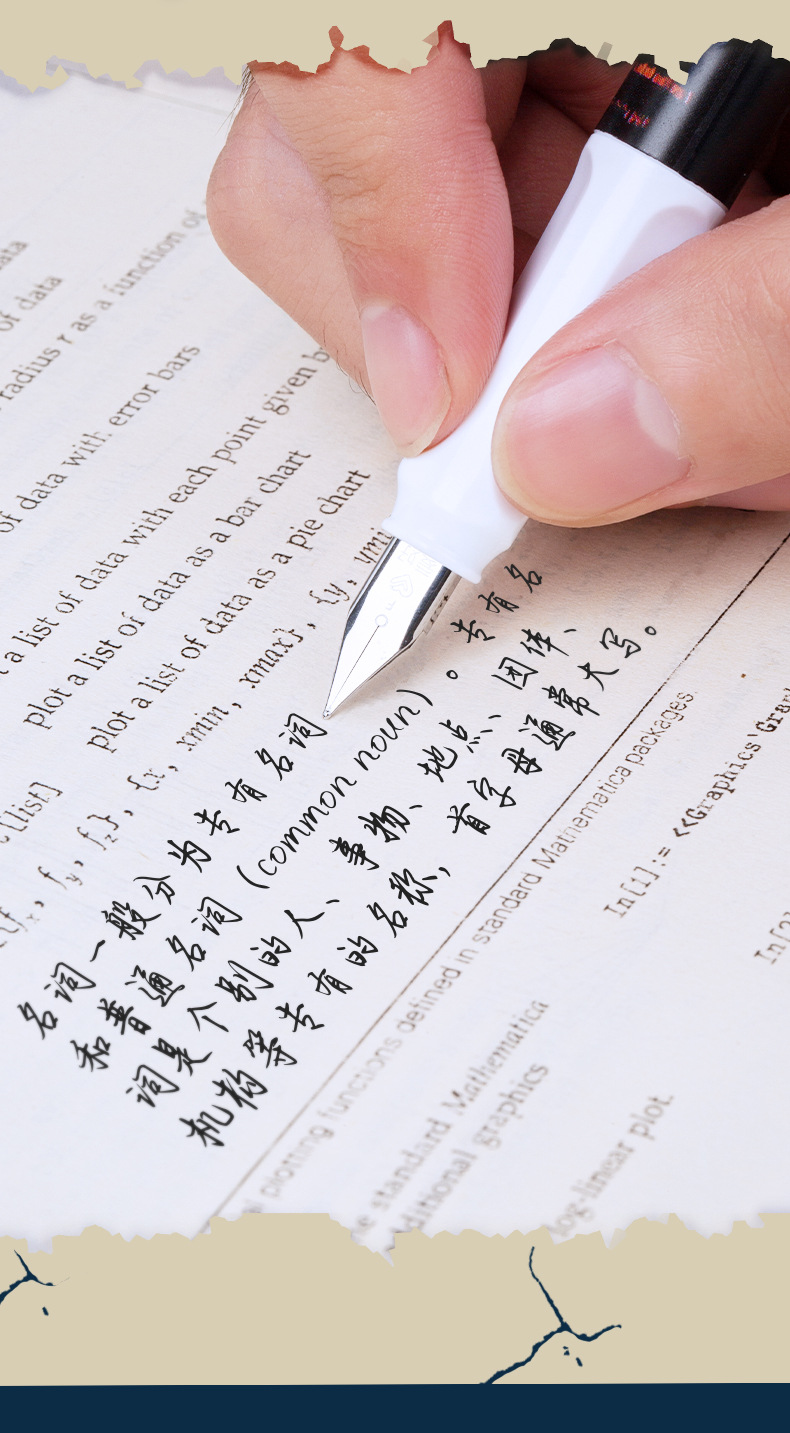 ata
of data
radius r as a function of
of data with error bars
a list of data with each point given b
plot a list of data as a bar chart
plot a list of data as a pie chart
[list]
{x, xmin, xmax}, {y, ymi
{fx, fy, fz},
名词一般分为专有名词
和普通名词(common noun)。专有名
词是个别的人、事物、地点、团体、
机构等专有的名称,首字母通常大写。
al plotting functions defined in standard Mathematica packages.
In[1]:= <<Graphics`Grap
In[2]
e standard Mathematica
additional graphics
log-linear plot.